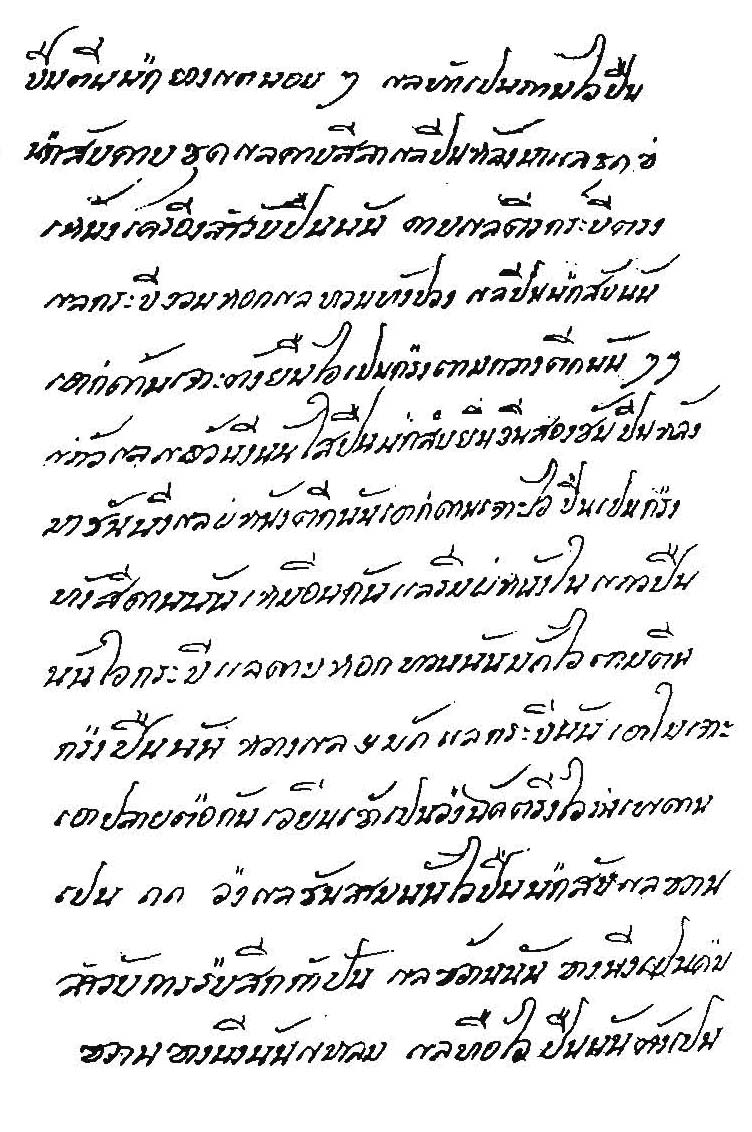 ปืนตีนนก ยองแตนอย ๆ แลทำเปนภานไวปืน
นกสับดาบ ชุด แลดาบสีลา แลปืนหลังมา แล รก ข
เหนัง เครือ่งสำรบปืนนนั ดาบ แล ตีว กระบีตรง
แลกระบี งวน หอก แล ทวน ทงัปวง แลปืนนกสับนนั
เอาก่ดานเจาะ ตงัยืนไวเปนกรงตามกวางตึกนนั ๆๆ
แก้ว แล แลวนึงนนั ใสปืนนกสับยืนขึนสองชนั ปืนหลงั
มาชนันึง แลผหนงัตึกนนัเอาก่ดานเจาะไว ปืนเปนกรง
ทงัสีดานนนั เหมือนกนั แลริมผหนงัใน แถวปืน
นนัไวกระบี แลดาบ หอก ทวนนนั มดัไว ตามตีน
กรงปืนนนั หวาง แล มดั แลกระบีนนั เอาใบเจาะ
เอาปลายตอกนั เวียนเขาเปนวงมดัตรึงไวเพดาน
เปน กก วง แลชนัสามนนัไวปืนนกสับ แลขวาน
สำรบัการรบสึกกำปัน แลขวานนนั ขางนึงเปนคม
ขวาน ขางนึงนนัแหลม แลทีไว ปืนนนั ตงัเปน